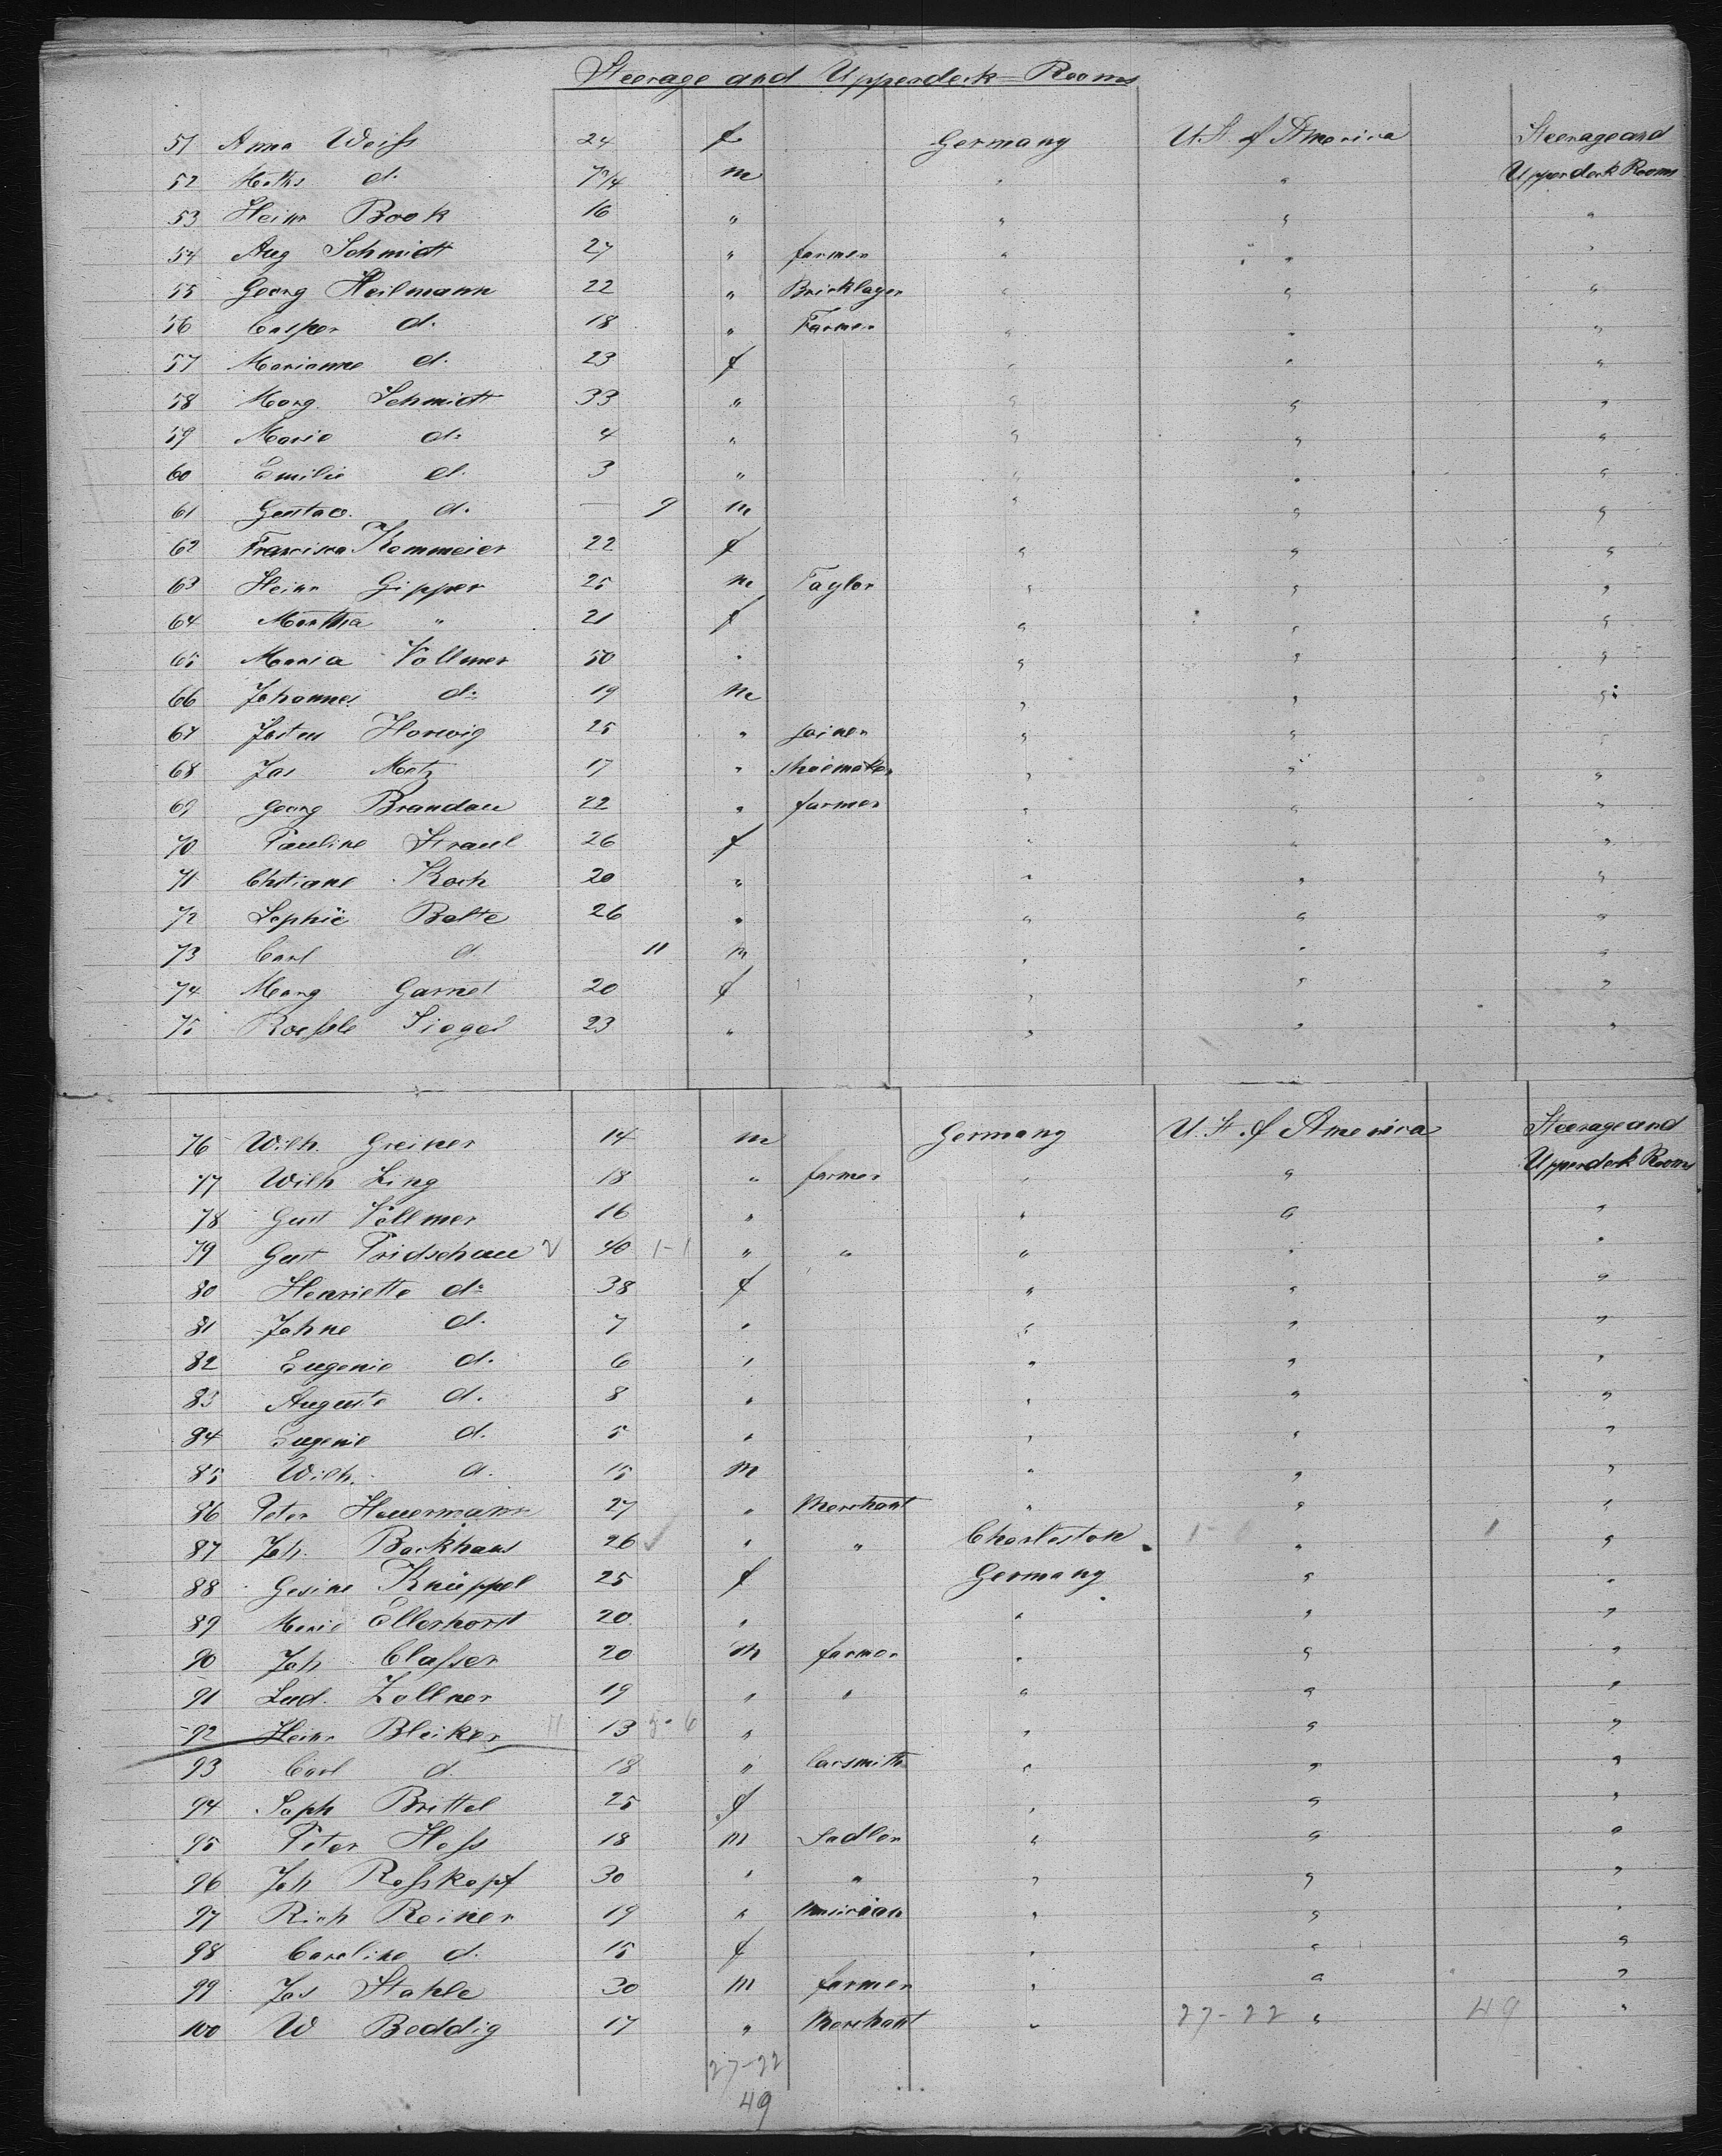 Steerage and Upperdeck-Rooms
51 Anna Weiss 24 f Germany U. St. of America Steerage and
52 Maths d. m " " Upperdeck Rooms
53 Heinr Book 16 " " " "
54 Aug Schmidt 27 " farmer " " "
55 Georg Heilmann 22 " Bricklayer " " "
56 Casper d. 18 " Farmer " " "
57 Marianne d. 23 f " " "
58 Marg. Schmidt 33 " " " "
59 Marie d. 4 " " " "
60 Emilie d. 3 " " " "
61 Gustav. d. — 9 m " " "
62 Francisca Kammeier 22 f " " "
63 Heinr Gipper 25 m Taylor " " "
64 Martha " 21 f " " "
65 Maria Vollmer 50 " " " "
66 Johannes d. 19 m " " "
67 Justus Horwig 25 " joiner " " "
68 Jas Metz 17 " Shoemaker " " "
69 Georg Brandau 22 " farmer " " "
70 Pauline Straul 26 f " " "
71 Chstiane Koch 20 " " " "
72 Sophie Bolte 26 " " " "
73 Carl d. — 11 m " " "
74 Marg Garnet 20 f " " "
75 Roessle Siegel 23 " " " "
76 Wilh. Greiner 14 m Germany U. St. of America Steerage and
77 Wilh Ling 18 " farmer " " Upperdeck Rooms
78 Gust Vollmer 16 " " " "
79 Gust Pridschau 2 40 1-1 " " " " "
80 Henriette d. 38 f " " "
81 Johne d. 7 " " " "
82 Eugenie d. 6 " " " "
83 Auguste d. 8 " " " "
84 Eugenie d. 5 " " " "
85 Wilh. d. 15 m " " "
86 Peter Hauermann 27 " Merchant " " "
87 Joh. Backhaus 26 " " Charleston 1 " 1 "
88 Gesine Knüppel 25 f Germany " "
89 Marie Ellerhorst 20 " " " "
90 Joh Classer 20 m farmer " " "
91 Lud. Zollner 19 " " " " "
92 Heinr Bleiker 11 13 5 6 " " " "
93 Carl d. 18 " Carsmith " " "
94 Soph Brittel 25 f " " "
95 Peter Hess 18 m Sadler " " "
96 Joh Rosskopf 30 " " " " "
97 Rich Reiner 19 " Musician " " "
98 Caroline d. 15 f " " "
99 Jos Stahle 30 m farmer " " "
100 W Beddig 17 " Merchant " 27-22 " 49 "
27-22
49